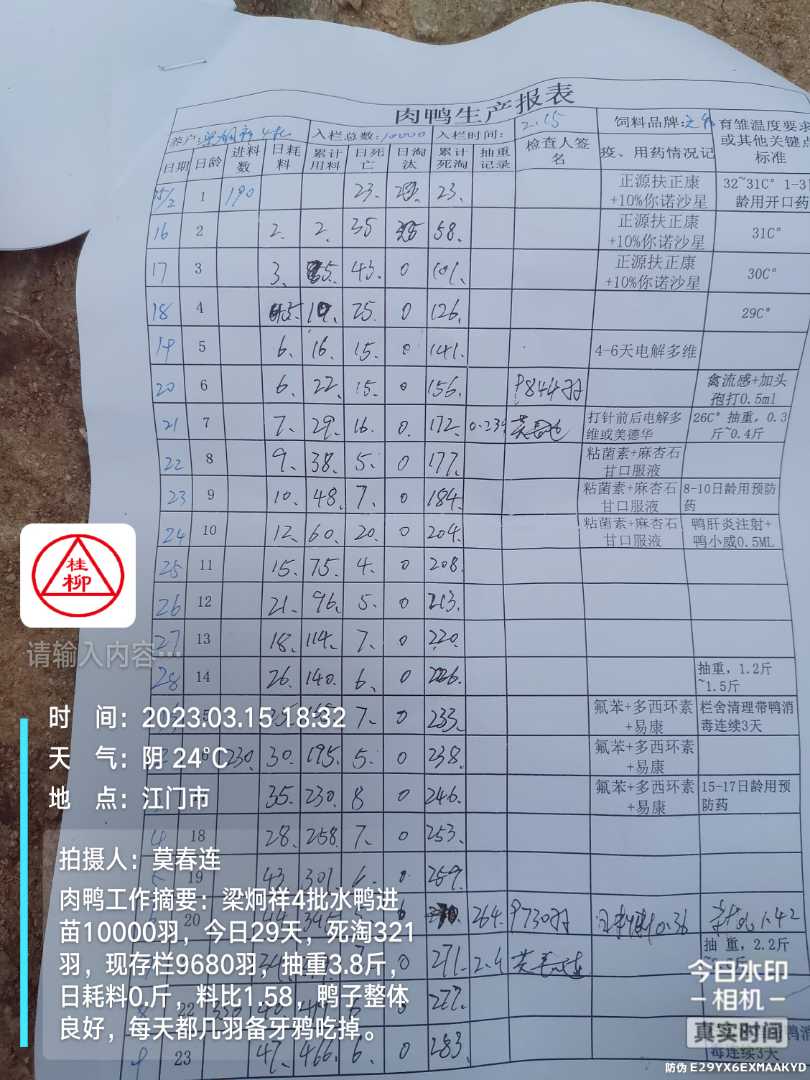 肉鸭生产报表
养户: 4批 入栏总数:10000 入栏时间: 2.15 饲料品牌: 育雏温度要求或其他关键点标准
日期 日龄 进料数 日耗料 累计用料 日死亡 日淘汰 累计死淘 抽重记录 检查人签名 疫、用药情况记
15/2 1 190 23. 23. 正源扶正康+10%你诺沙星 32~31C° 1-3龄用开口药
16 2 2. 2. 35 58. 正源扶正康+10%你诺沙星 31C°
17 3 3. 5. 43. 0 101. 正源扶正康+10%你诺沙星 30C°
18 4 25. 0 126. 29C°
19 5 6. 16. 15. 0 141. 4-6天电解多维
20 6 6. 22. 15. 0 156. 9844羽 禽流感+加头孢打0.5ml
21 7 7. 29. 16. 0. 172. 打针前后电解多维或美德华 26C° 抽重，0.3斤~0.4斤
22 8 9. 38. 5. 0 177. 粘菌素+麻杏石甘口服液
23 9 10. 48. 7. 0 184. 粘菌素+麻杏石甘口服液 8-10日龄用预防药
24 10 12 60. 20. 0 204. 粘菌素+麻杏石甘口服液 鸭肝炎注射+鸭小威0.5ML
25 11 15. 75. 4. 0 208.
26 12 21. 96. 5. 0 213.
27 13 18. 114. 7. 0 220.
28 14 26. 140. 6. 0 226. 抽重，1.2斤~1.5斤
15 7. 0 233. 氟苯+多西环素+易康 栏舍清理带鸭消毒连续3天
230. 30. 195. 5. 0 238. 氟苯+多西环素+易康
35. 230. 8 0 246. 氟苯+多西环素+易康 15-17日龄用预防药
18 28. 258. 7. 0 253.
19 43. 301. 6. 0 259.
20 264. 9730羽 0.36 1.42
271. 2.4 抽 重，2.2斤
22 277.
9 23 47. 466. 6. 0 283. 毒连续3天
桂柳
请输入内容…
时 间：2023.03.15 18:32
天 气：阴 24℃
地 点：江门市
拍摄人：莫春连
肉鸭工作摘要：梁炯祥4批水鸭进
苗10000羽，今日29天，死淘321
羽，现存栏9680羽，抽重3.8斤，
日耗料0.斤，料比1.58，鸭子整体
良好，每天都几羽备牙鸦吃掉。
今日水印
相机
真实时间
防伪 E29YX6EXMAAKYD